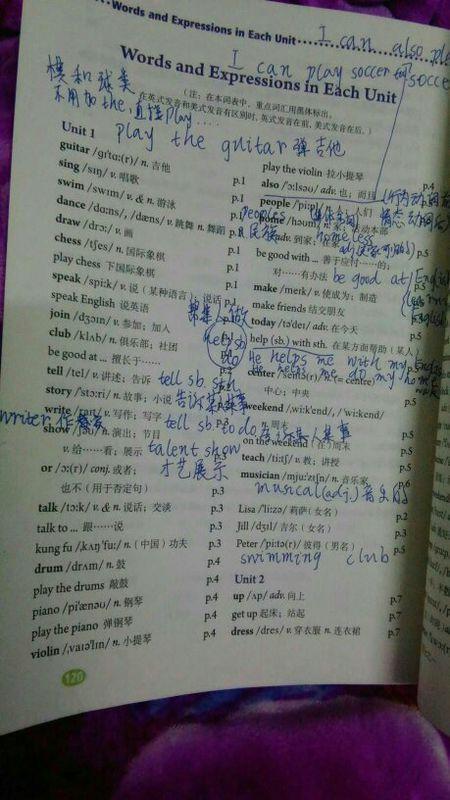 Words and Expressions in Each Unit
I can also pl
I can play soccer
Words and Expressions in Each Unit
棋和球类
不用加the.直接play....
(注：在本词表中，重点词汇用黑体标出。
在英式发音和美式发音有区别时，英式发音在前，美式发音在后。)
play the guitar 弹吉他
Unit 1
guitar /ɡɪˈtɑː(r)/ n. 吉他 p.1
sing /sɪŋ/ v. 唱歌 p.1
swim /swɪm/ v. & n. 游泳 p.1
dance /dɑːns/, /dæns/ v. 跳舞 n. 舞蹈 p.1
draw /drɔː/ v. 画 p.1
chess /tʃes/ n. 国际象棋 p.1
play chess 下国际象棋 p.1
speak /spiːk/ v. 说（某种语言）；说话 p.1
speak English 说英语 p.1
join /dʒɔɪn/ v. 参加；加入
club /klʌb/ n. 俱乐部；社团
be good at ... 擅长于……
tell /tel/ v. 讲述；告诉 tell sb. sth
story /ˈstɔːri/ n. 故事；小说
write /raɪt/ v. 写作；写字 tell sb. to do
writer
show /ʃəʊ/ n. 演出；节目
v. 给……看；展示 talent show
才艺展示
or /ɔː(r)/ conj. 或者；
也不（用于否定句） p.3
talk /tɔːk/ v. & n. 说话；交谈 p.3
talk to ... 跟……说 p.3
kung fu /ˌkʌŋ ˈfuː/ n.（中国）功夫 p.3
drum /drʌm/ n. 鼓 p.4
play the drums 敲鼓 p.4
piano /piˈænəʊ/ n. 钢琴 p.4
play the piano 弹钢琴 p.4
violin /ˌvaɪəˈlɪn/ n. 小提琴 p.4
play the violin 拉小提琴 p.4
also /ˈɔːlsəʊ/ adv. 也；而且
people /ˈpiːpl/ n. 人们
peoples
民族
home /həʊm/ n. 家；活动本部
adv. 到家；在家
homeless
be good with ... 善于应付……的；
对……有办法 be good at English
make /meɪk/ v. 使成为；制造
make friends 结交朋友
today /təˈdeɪ/ adv. 在今天
帮某人做
help (sb.) with sth. 在某方面帮助（某人）
help sb
He helps me with my
center /ˈsentə(r)/ (= centre)
do He helps me do my home
中心；中央
weekend /ˌwiːkˈend/, /ˈwiːkend/
on the weekend（在）周末 p.5
teach /tiːtʃ/ v. 教；讲授 p.5
musician /mjuːˈzɪʃn/ n. 音乐家 p.5
musical (adj.) 音乐的
Lisa /ˈliːzə/ 莉萨（女名） p.2
Jill /dʒɪl/ 吉尔（女名） p.5
Peter /ˈpiːtə(r)/ 彼得（男名） p.5
swimming club
Unit 2
up /ʌp/ adv. 向上 p.7
get up 起床；站起 p.7
dress /dres/ v. 穿衣服 n. 连衣裙 p.7
120